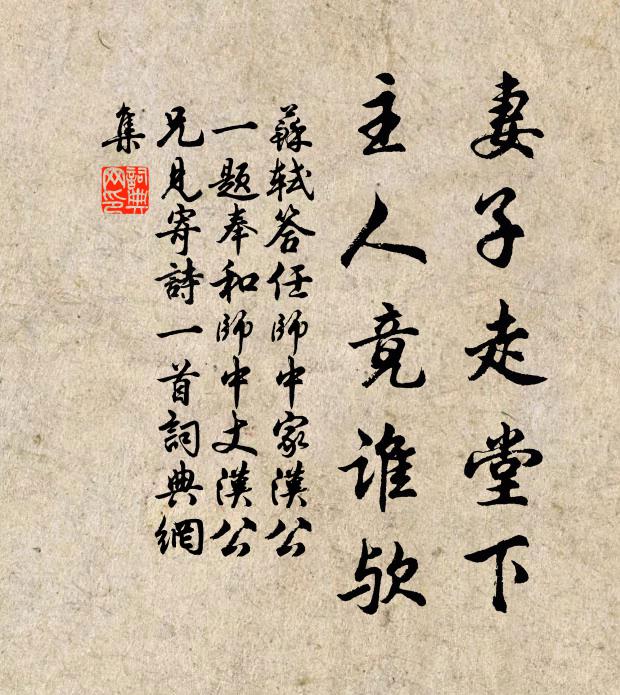 妻子走堂下
主人竟谁欤
蘇軾答任師中家漢公
一題奉和師中丈漢公
兄見寄詩一首詞典網
集
詞典
网印